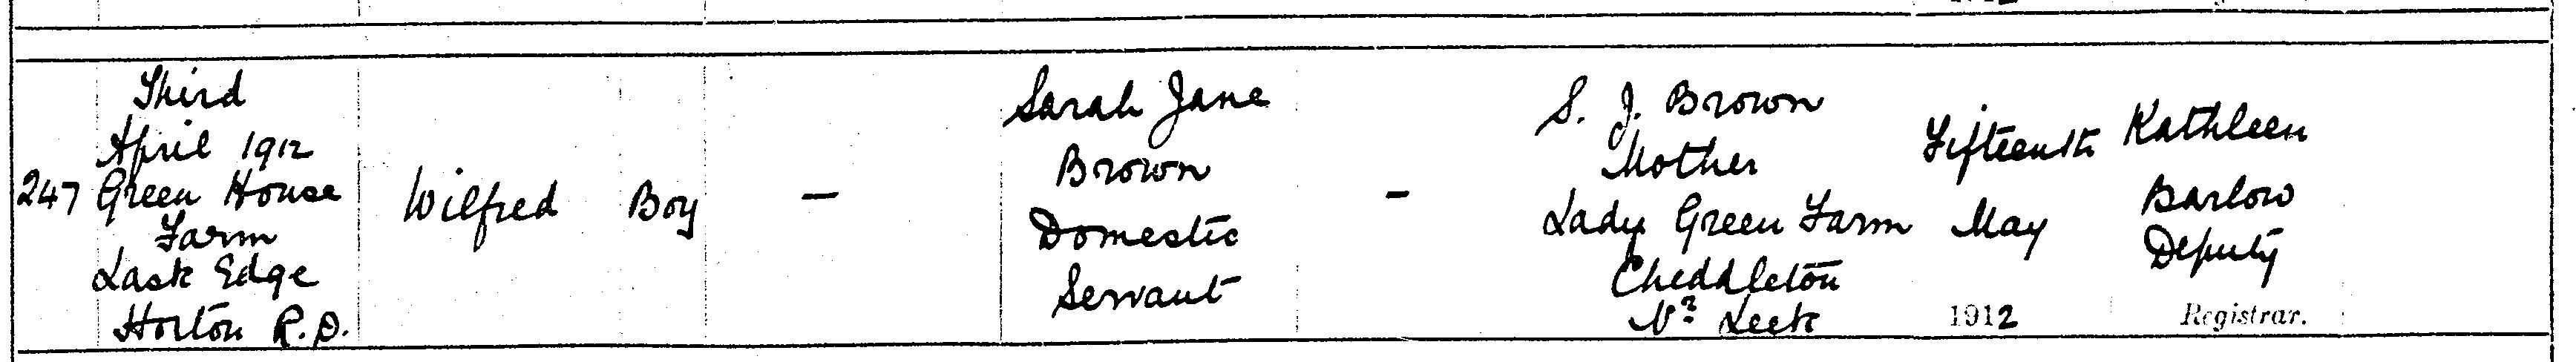 247
Third
April 1912
Green House
Farm
Lask Edge
Horton R.D.
Wilfred
Boy
—
Sarah Jane
Brown
Domestic
Servant
—
S. J. Brown
Mother
Lady Green Farm
Cheddleton
Nr Leek
Fifteenth
May
1912
Kathleen
Barlow
Deputy
Registrar.